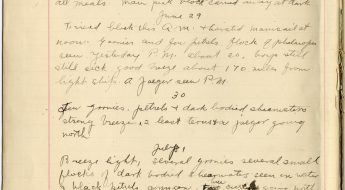 all meals. Main pack block carried away at dark.
June 29
Tried block this A.M. & hoisted mainsail at
noon. Goonies and few petrels flock of phalaropes
seen yesterday P.M. about 20. boys still
still sick good breeze about 170 miles from
light ship. A Jaeger seen P.M.
30
Few goonies, petrels & dark bodied shearwaters
strong breeze, a least tern & a jaeger going
north
July 1
Breeze light, several goonies several small
flocks of dark bodied shearwaters seen in water
black petrels